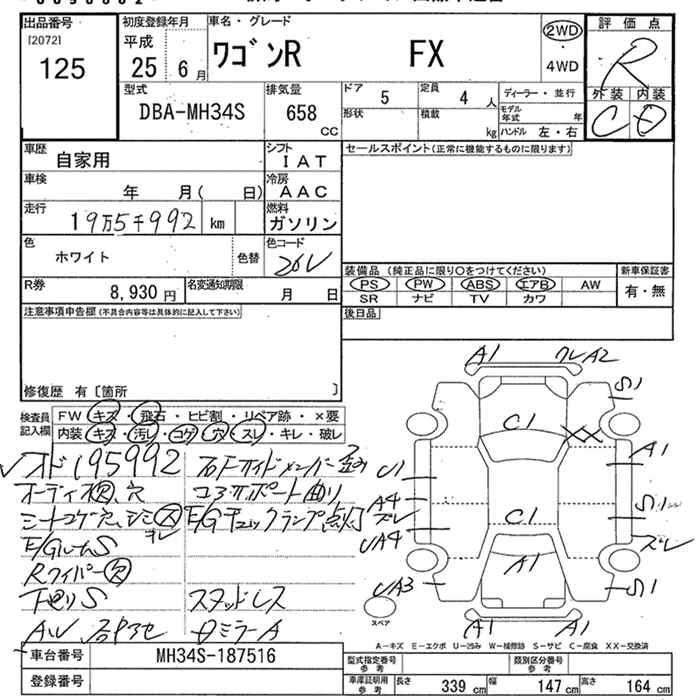 出品番号
[2072]
125
初度登録年月
平成
25 6 月
車名・グレード
ワゴンR FX
2WD
4WD
評価点
R
外装 内装
C D
型式
DBA-MH34S
排気量
658
CC
ドア 5
定員 4 人
形状
積載 kg
ディーラー・並行
モデル年式 年
ハンドル 左・右
車歴
自家用
シフト
IAT
車検
年 月( 日)
冷房
AAC
走行
19万5千992 km
燃料
ガソリン
色
ホワイト
色替
色コード
26U
R券
8,930 円
名変通知期限
月 日
注意事項申告欄(不具合内容等は具体的に記入して下さい)
修復歴 有〔箇所 〕
セールスポイント(正常に機能するものに限ります)
装備品(純正品に限り〇をつけてください)
PS PW ABS エアB AW
SR ナビ TV カワ
新車保証書
有・無
後日品
検査員記入欄
FW キズ・飛石・ヒビ割・リペア跡・×要
内装 キズ・汚レ・コゲ・穴・スレ・キレ・破レ
オド195992
オーディオ欠、穴
シートコゲ穴、シミ
ヨレ
E/GルームS
Rワイパー欠
下廻りS
コアサポート曲り
E/Gチェックランプ点灯
スタッドレス
A1
クレA2
S1
C1
XX
U1
A1
A4
ズレ
S1
C1
UA4
ズレ
A1
UA3
S1
A1
A1
スペア
A-キズ E-エクボ U-凹み W-補修跡 S-サビ C-腐食 XX-交換済
車台番号
MH34S-187516
登録番号
型式指定番号
参考
類別区分番号
参考
車庫証明用
参考
長さ 339 cm
幅 147 cm
高さ 164 cm